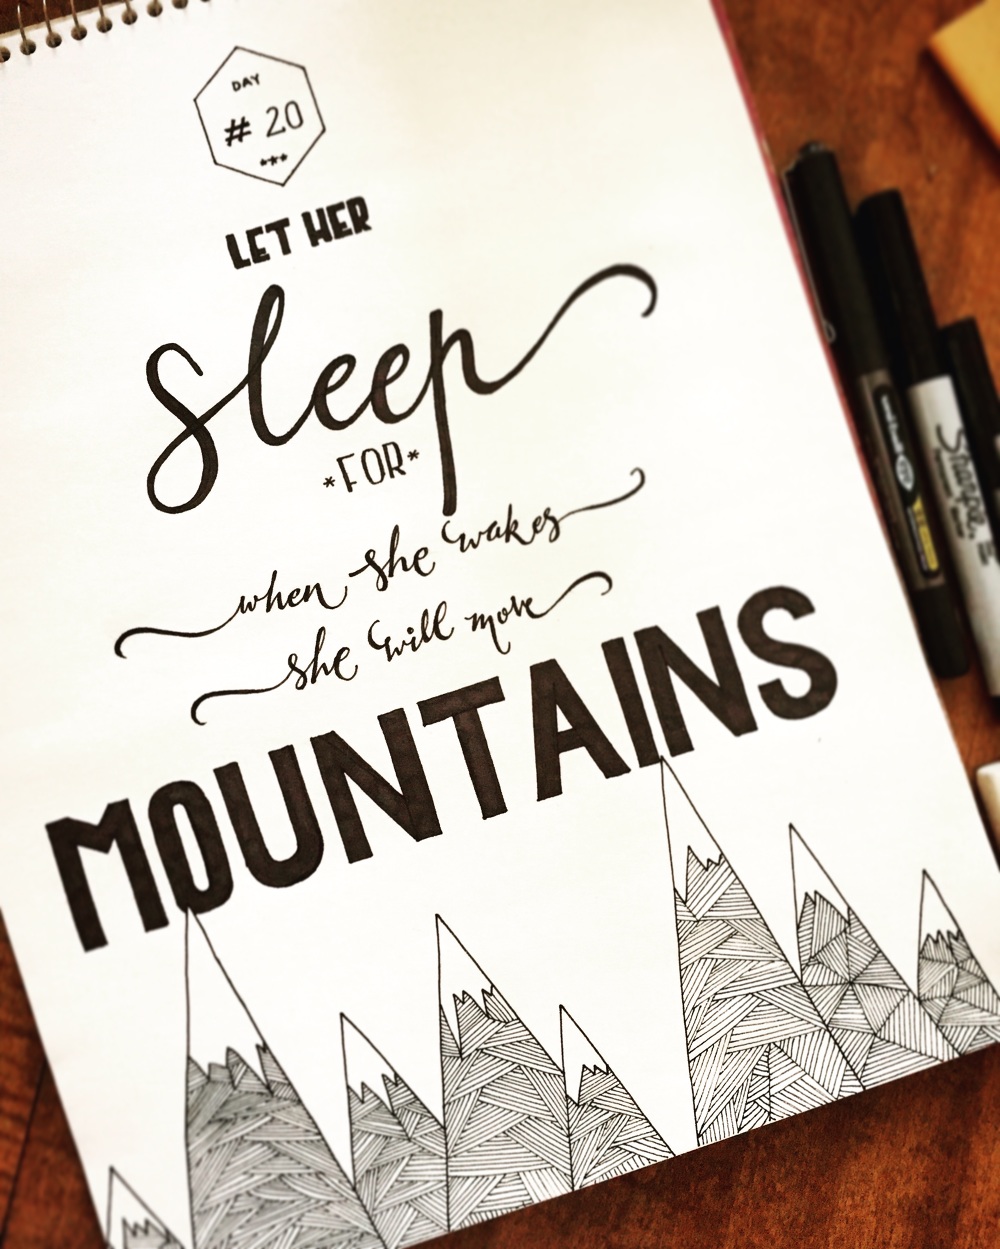 DAY
# 20
***
LET HER
sleep
*FOR*
when she wakes
she will move
MOUNTAINS
Sharpie